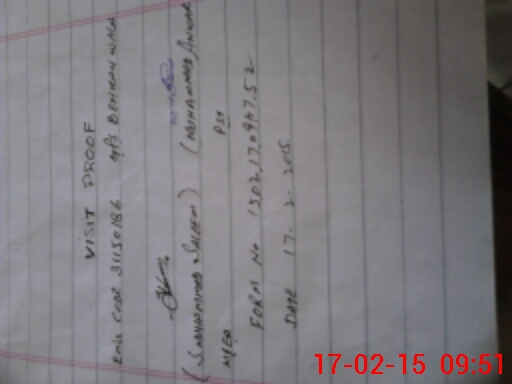 VISIT PROOF
Emis CODE 31150186 GPS BEHKAN WALA
(MUHAMMAD SALEEM) (MUHAMMAD ANWAR
MEA PST
FORM No 1502170947.52
DATE 17-2-2015
17-02-15 09:51